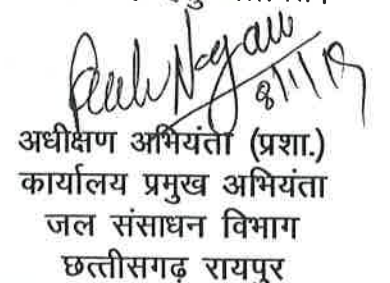 8/1/19
अधीक्षण अभियंता (प्रशा.)
कार्यालय प्रमुख अभियंता
जल संसाधन विभाग
छत्तीसगढ़ रायपुर